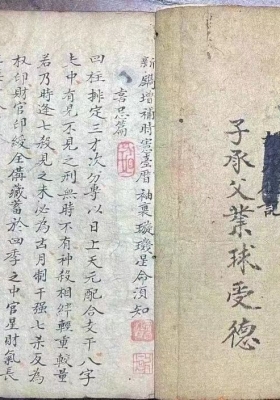 記
子承父業球受德
新鐫增補時憲臺曆袖裏璇璣星命須知
喜忌篇
四柱排定三才次分專以日上天元配合支干八字
中有見不見之刑無時不有神殺相絆輕重較量
若乃時逢七殺見之未必為凶月制干强七杀反為
权印財官印綬全備藏蓄於四季之中官星財氣長